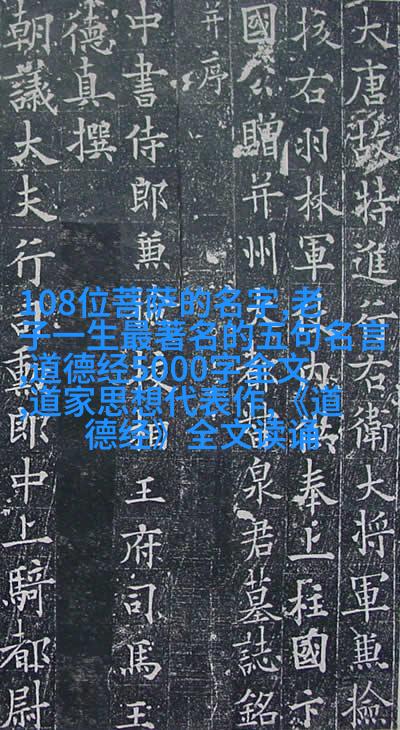 大唐故特進行右衛大將軍兼撿
挍右羽林軍內供奉上柱國卞
國公贈并州大都督泉君墓誌銘
并序
中書侍郎兼檢校相王府司馬王
德真撰
朝議大夫行司勳郎中上騎都尉
108位菩萨的名字,老
子一生最著名的五句名言
,道德经5000字全文
,道家思想代表作,《道
德经》全文读诵